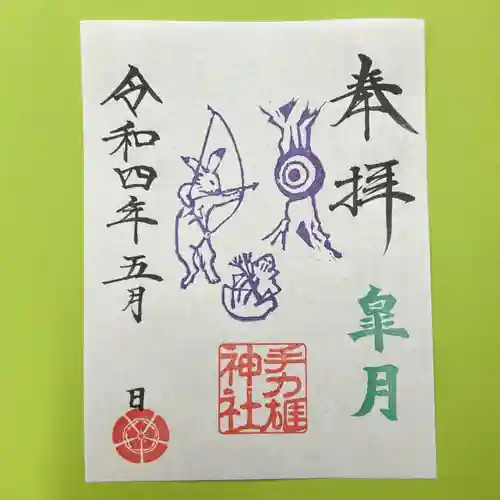 奉拝
皐月
手力雄
神社
令和四年五月
日